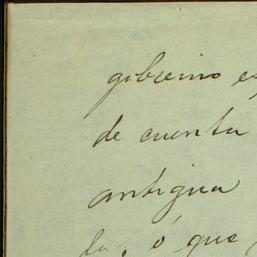 gobierno es
de cuenta
antigua
da, ó que